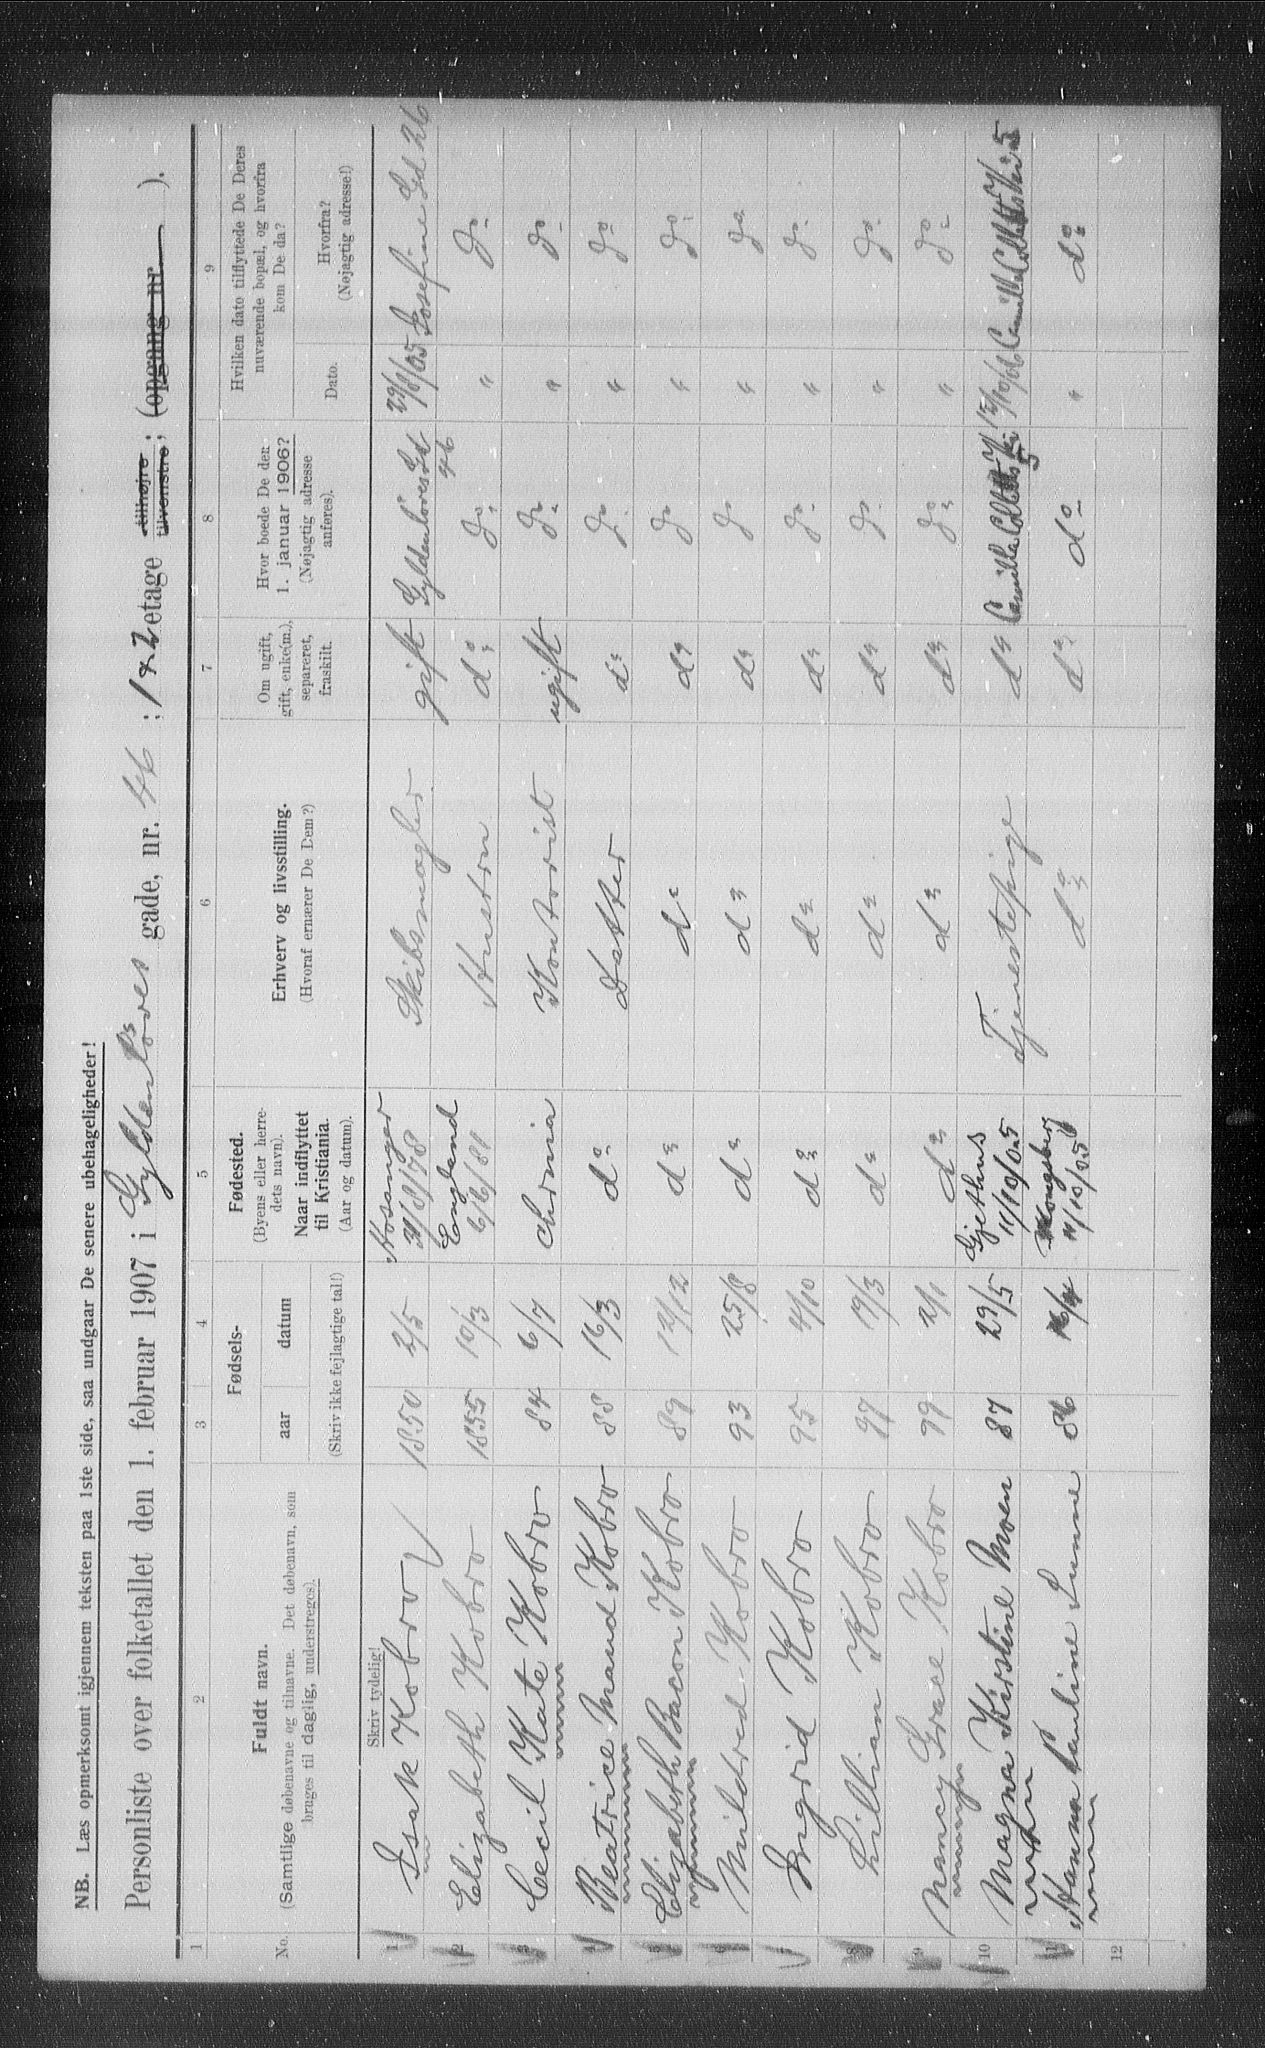 NB. Læs opmerksomt igjennem teksten paa 1ste side, saa undgaar De senere ubehageligheder!
Personliste over folketallet den 1. februar 1907 i Gyldenløves gade, nr. 46 ; 1 & 2 etage tilhøjre tilvenstre ; (opgang nr ).
1 2 3 4 5 6 7 8 9
No.
Fuldt navn.
(Samtlige døbenavne og tilnavne. Det døbenavn, som
bruges til daglig, understreges).
Skriv tydelig!
Fødsels-
aar datum
(Skriv ikke fejlagtige tal!)
Fødested.
(Byens eller herre-
dets navn).
Naar indflyttet
til Kristiania.
(Aar og datum).
Erhverv og livsstilling.
(Hvoraf ernærer De Dem?)
Om ugift,
gift, enke(m.),
separeret,
fraskilt.
Hvor boede De den
1. januar 1906?
(Nøjagtig adresse
anføres).
Hvilken dato tilflyttede De Deres
nuværende bopæl, og hvorfra
kom De da?
Dato.
Hvorfra?
(Nøjagtig adresse!)
1 Isak Kobro 1850 2/5 Hosanger /8/78 Skibsmægler gift Gyldenløves Gd 46 29/8/05 Josefine Gd 26
2 Elizabeth Kobro 1855 10/3 England 6/6/81 Hustru do " do
3 Cecil Kate Kobro 84 6/7 Chrnia Kontorist ugift do " do
4 Beatrice Maud Kobro 88 16/3 do Datter do do " do
5 Elizabeth Bacon Kobro 89 12/12 do do do do " do
6 Mildred Kobro 93 25/8 do do do do " do
7 Ingrid Kobro 95 4/10 do do do do " do
8 Lillian Kobro 97 19/3 do do do do " do
9 Nancy Grace Kobro 99 2/1 do do do do " do
10 Magna Kirstine Moen 87 29/5 Gjethus 11/10/05 Tjenestepige do Camilla Colletts V. 5 /10/06 Camilla Colletts V. 5
11 Hanna Pauline Lunne 86 Kongsberg /10/05 do do do " do
12